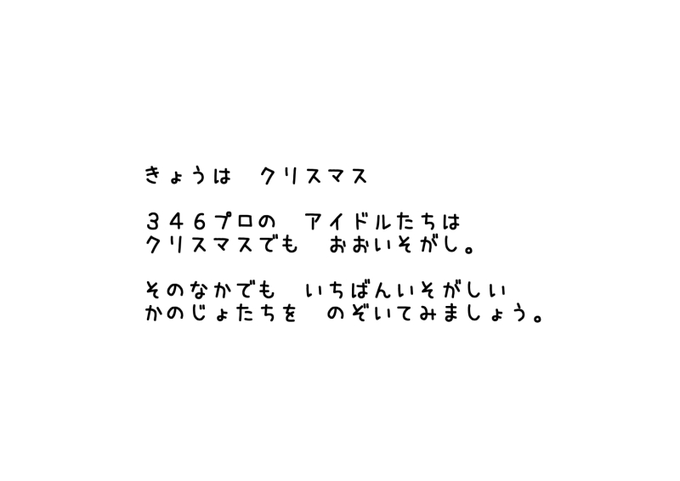 きょうは　クリスマス
３４６プロの　アイドルたちは
クリスマスでも　おおいそがし。
そのなかでも　いちばんいそがしい
かのじょたちを　のぞいてみましょう。